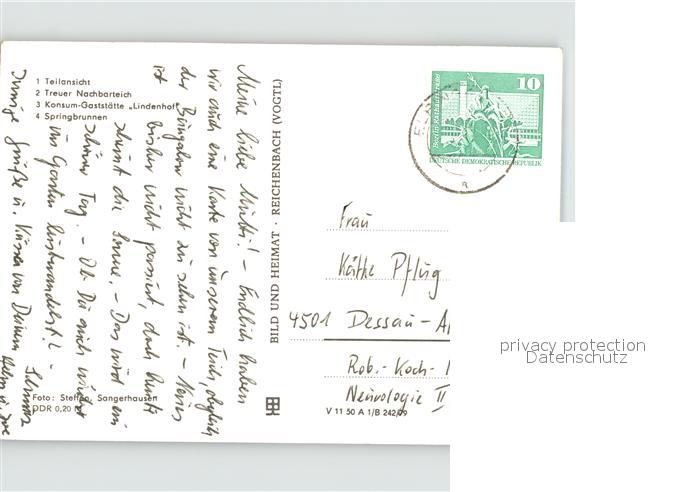 1 Teilansicht
2 Treuer Nachbarteich
3 Konsum-Gaststätte „Lindenhof"
4 Springbrunnen
Meine liebe Mutti! – Endlich haben
wir auch eine Karte von unserem Teich, obgleich
der Bungalow nicht zu sehen ist. – Neues ist
bisher nicht passiert, doch heute
scheint die Sonne. – Das wird ein
schöner Tag. – Ob Du auch wieder
im Garten lustwandelst? –
Innige Grüße u. Küsse von Deinem
Foto: Steffen, Sangerhausen
DDR 0,20
BILD UND HEIMAT · REICHENBACH (VOGTL)
V 11 50 A 1/B 242/09
10
Berlin Rathausstraße
DEUTSCHE DEMOKRATISCHE REPUBLIK
Frau
Käthe Pflug
4501 Dessau-
Rob.-Koch-
Neurologie II
privacy protection
Datenschutz